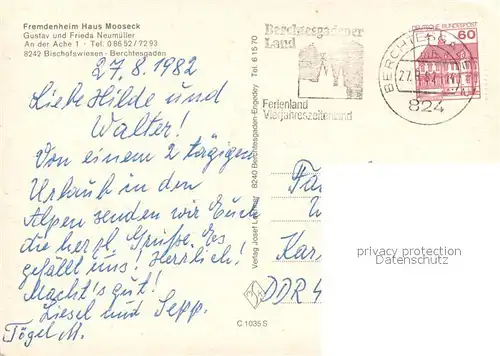 Fremdenheim Haus Mooseck
Gustav und Frieda Neumüller
An der Ache 1 · Tel. 0 86 52 / 72 93
8242 Bischofswiesen - Berchtesgaden
27.8.1982
Liebe Hilde und
Walter!
Von einem 2 tägigen
Urlaub in den
Alpen senden wir Euch
die herzl. Grüße. Es
gefällt uns! Herrlich!
Macht's gut!
Liesel und Sepp.
Tögel M.
Verlag Josef 8240 Berchtesgaden Tel. 6 15 70
C 1035 S
Berchtesgadener
Land
Ferienland
Vierjahreszeitenland
BERCHTESGADEN
824
DEUTSCHE BUNDESPOST
60
Kar
DDR 4
privacy protection
Datenschutz